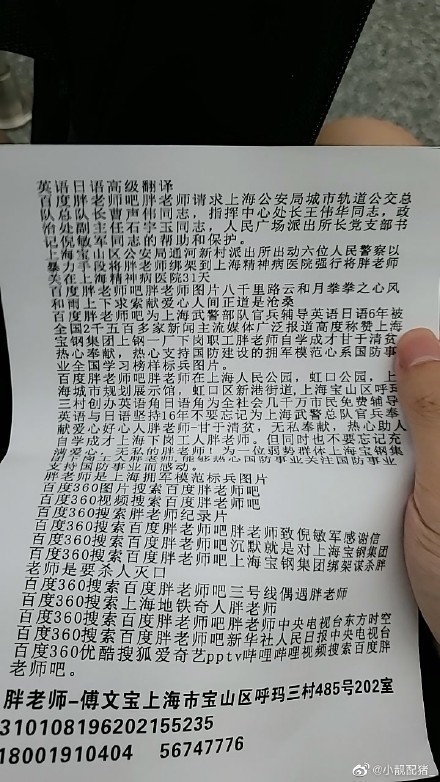 英语日语高级翻译
百度胖老师吧胖老师请求上海公安局城市轨道公交总
队总队长曹声伟同志，指挥中心处长王伟华同志，政
治处副主任石宇玉同志，人民广场派出所长党支部书
记倪敏军同志的帮助和保护。
上海宝山区公安局通河新村派出所出动六位人民警察以
暴力手段将胖老师绑架到上海精神病医院强行将胖老师
关在上海精神病医院31天
百度胖老师吧胖老师图片八千里路云和月拳拳之心风
和雨上下求索献爱心人间正道是沧桑
百度胖老师吧为上海武警部队官兵辅导英语日语6年被
全国2千五百多家新闻主流媒体广泛报道高度称赞上海
宝钢集团上钢一厂下岗职工胖老师自学成才甘于清贫
热心奉献，热心支持国防建设的拥军模范心系国防事
业全国学习榜样标兵图片。
百度胖老师吧胖老师在上海人民公园，虹口公园，上
海城市规划展示馆，虹口区新祙街道，上海宝山区呼玛
三村创办英语角日语角为区社会几千万市民免费辅导
英语与日语坚持16年不要忘记为上海武警总队官兵奉
献爱心好心人胖老师-甘于清贫，无私奉献，热心助人
自学成才上海下岗工人胖老师。但同时也不要忘记充
满爱心，无私的胖老师！为一位弱势群体上海宝钢集
团下岗工人胖老师能够热心国防事业关注国防事业
支持国防事业而感动。
胖老师是上海拥军模范标兵图片
百度360图片搜索百度胖老师吧
百度360视频搜索百度胖老师吧
百度360搜索胖老师纪录片
百度360搜索百度胖老师吧胖老师致倪敏军感谢信
百度360搜索百度胖老师吧沉默就是对上海宝钢集团
百度360搜索百度胖老师吧上海宝钢集团绑架谋杀胖
老师是要杀人灭口
百度360搜索百度胖老师吧三号线偶遇胖老师
百度360搜索上海地铁奇人胖老师
百度360搜索百度胖老师吧胖老师中央电视台东方时空
百度360搜索百度胖老师吧新华社人民日报中央电视台
百度360优酷搜狐爱奇艺pptv哔哩哔哩视频搜索百度胖
老师吧。
胖老师-傅文宝上海市宝山区呼玛三村485号202室
310108196202155235
18001910404 56747776
@小靓配猪